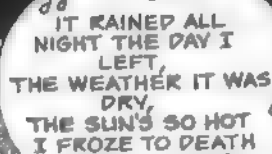 IT RAINED ALL
NIGHT THE DAY I
LEFT,
THE WEATHER IT WAS
DRY,
THE SUN'S SO HOT
I FROZE TO DEATH